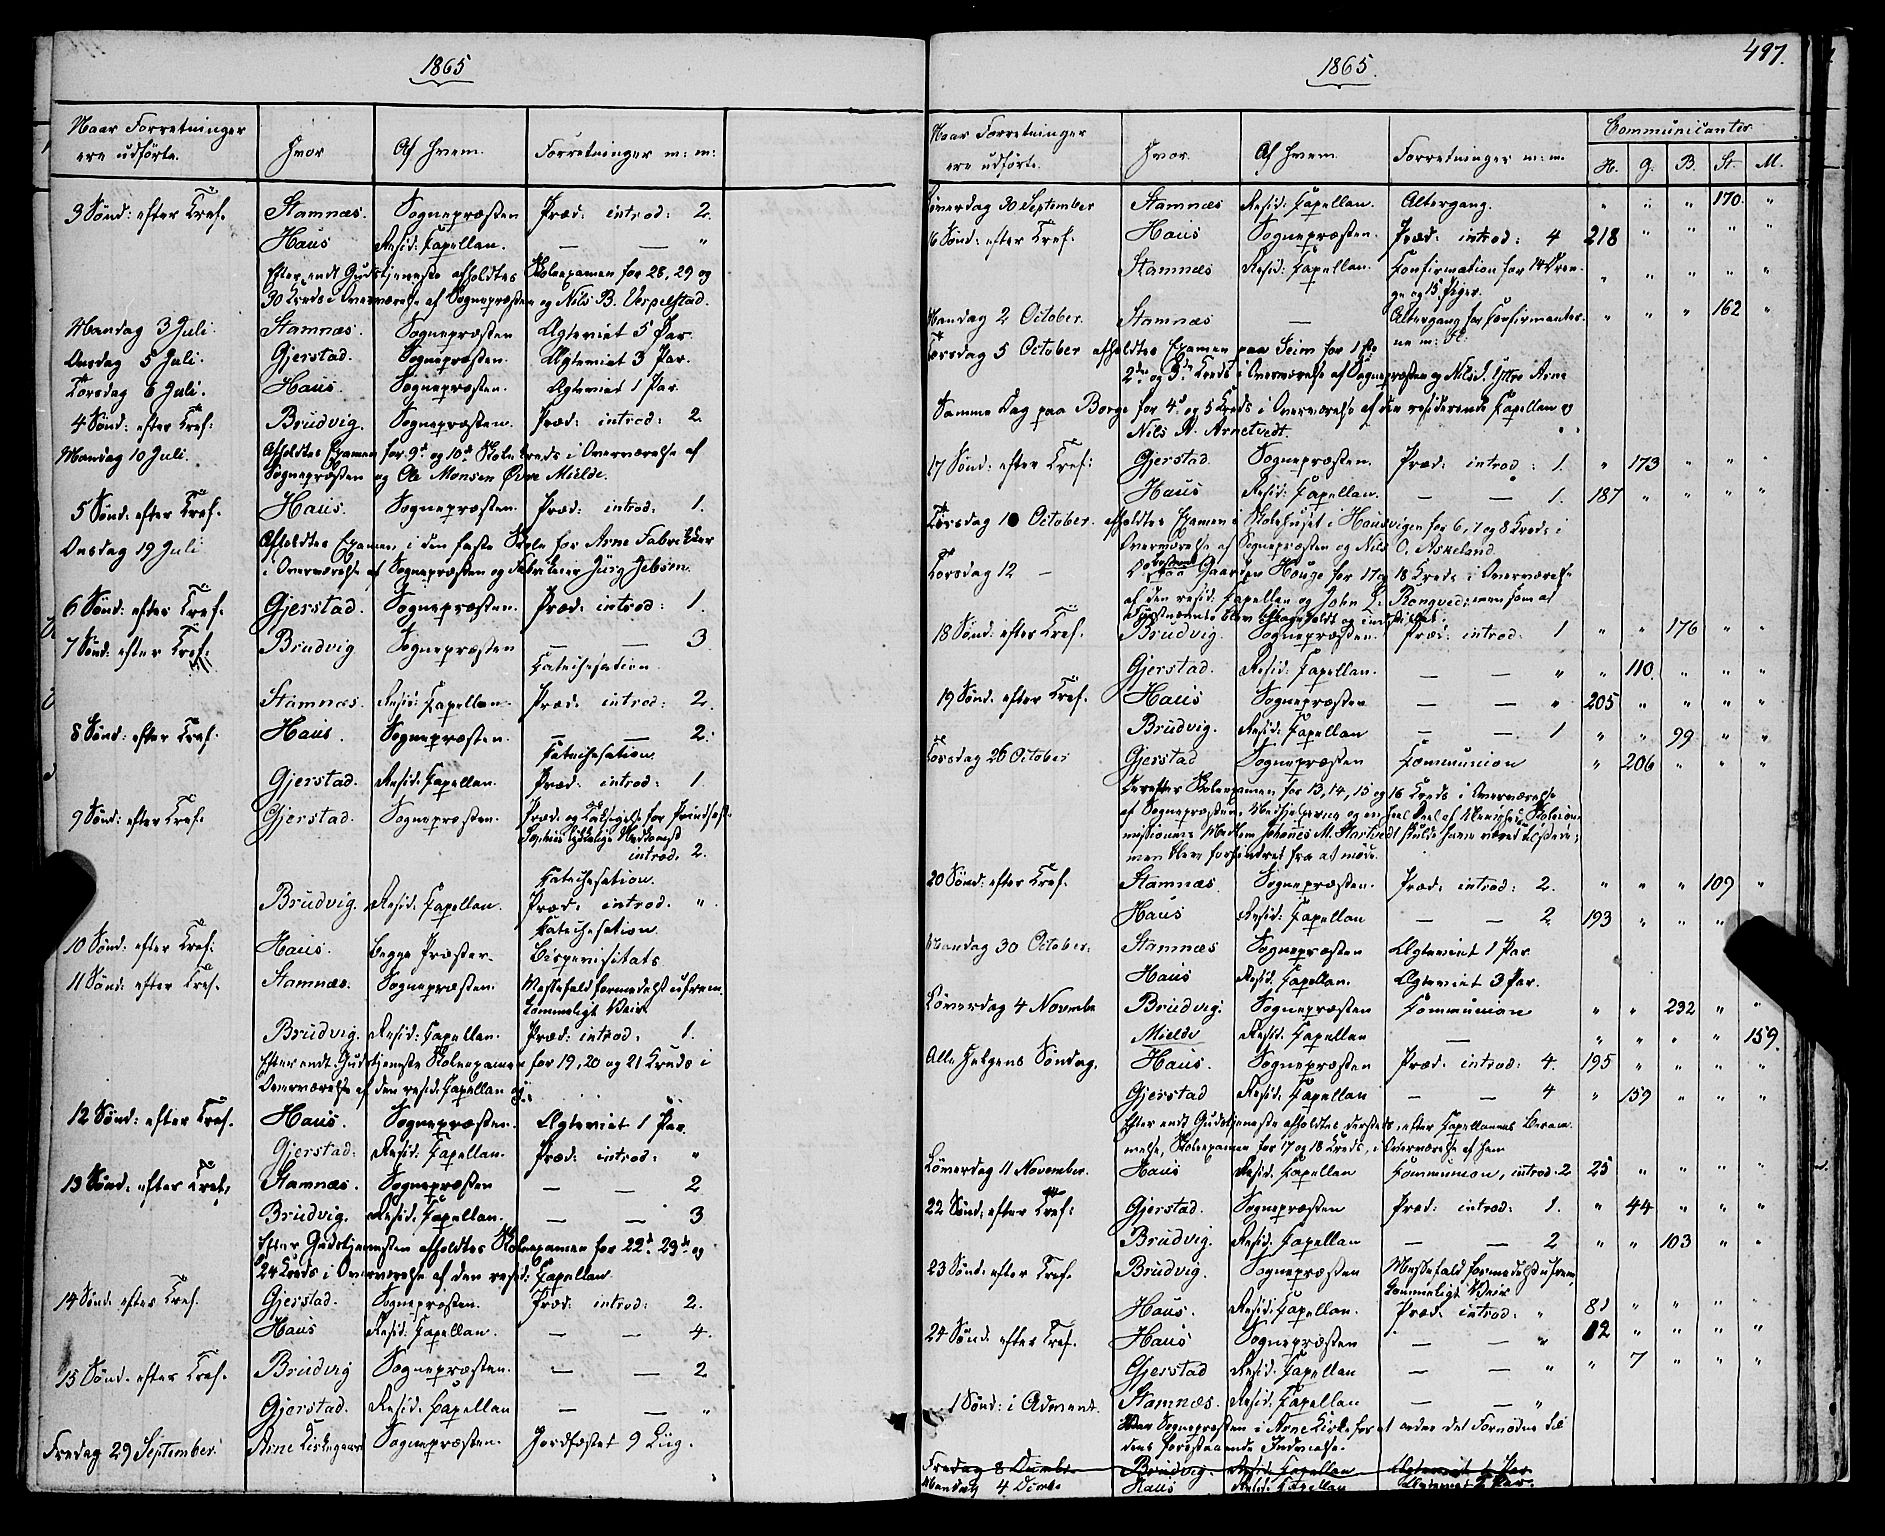 1865
Naar Forretninger ere udførte. Hvor Af hvem. Forretninger m: m:
3 Sønd: efter Tref. Stamnæs. Sognepræsten Præd: introd: 2.
Haus Resid: Capellan. — — "
Efter endt Gudstjeneste afholdtes Skoleexamen for 28, 29 og
30 Kreds i Overværelse af Sognepræsten og Nils B. Vespelstad.
Mandag 3 Juli. Stamnæs. Sognepræsten Ægteviet 5 Par.
Onsdag 5 Juli. Gjerstad. Sognepræsten. Ægteviet 3 Par.
Torsdag 6 Juli. Haus. Sognepræsten. Ægteviet 1 Par.
4 Sønd: efter Tref: Brudvig. Sognepræsten. Præd: introd: 2.
Mandag 10 Juli. Afholdtes Examen for 9de og 10de Skolekreds i Overværelse af
Sognepræsten og Ole Monsen Øvre Mielde.
5 Sønd: efter Tref. Haus. Sognepræsten. Præd: introd: 1.
Onsdag 19 Juli Afholdtes Examen i den faste Skole for Arne Fabrikker
i Overværelse af Sognepræsten og Fabrikeier Jürg Jebsen.
6 Sønd: efter Tref. Gjerstad. Sognepræsten. Præd: introd: 1.
7 Sønd: efter Tref. Brudvig Sognepræsten — — 3
Catechesation.
Stamnæs. Resid: Capellan. Præd: introd: 2.
8 Sønd: efter Tref. Haus. Sognepræsten. — — 2.
Catechesation
Gjerstad. Resid: Capellan. Præd: introd: 1.
9 Sønd: efter Tref. Gjerstad. Sognepræsten. Præd: og Taksigelse for Prindsesse
Sophies lykkelige Nedkomst
introd: 2.
Catechesation.
Brudvig. Resid: Capellan. Præd: introd. "
Catechesation.
10 Sønd: efter Tref: Haus. Begge Præster. Bispevisitats
11 Sønd: efter Tref. Stamnæs. Sognepræsten. Messefald formedelst ufrem-
kommeligt Veir.
Brudvig. Resid: Capellan. Præd: introd. 1.
Efter endt Gudstjeneste Skoleexamen for 19, 20 og 21 Kreds i
Overværelse af den resid: Capellan og:
12 Sønd: efter Tref. Haus. Sognepræsten. Ægteviet 1 Par.
Gjerstad: Resid: Capellan. Præd: introd: "
13 Sønd: efter Tref, Stamnæs. Sognepræsten — — 2
Brudvig. Resid: Capellan. — — 3
Efter Gudstjenesten afholdtes Skoleexamen for 22de 23de og
24 Kreds i Overværelse af den resid: Capellan
14 Sønd: efter Tref. Gjerstad. Sognepræsten. Præd: introd: 2.
Haus Resid: Capellan. — — 4.
15 Sønd: efter Tref. Brudvig Sognepræsten. — — 2
Gjerstad. Resid: Capellan — — "
Fredag 29 September. Arne Kirkegaard Sognepræsten. Jordfæstet 9 Liig.
1865. 497.
Naar Forretninger ere udførte. Hvor. Af hvem. Forretninger m: m. Communicanter
H. G. B. St. M.
Løverdag 30 September Stamnæs Resid: Capellan. Altergang. " " " 170. "
16 Sønd: efter Tref. Haus Sognepræsten. Præd: introd: 4 218 " " " "
Stamnæs Resid: Capellan. Confirmation for 14 Dren-
ge og 15 Piger. " " " " "
Mandag 2 October. Stamnæs — Altergang for Confirmanter-
ne m: Fl. " " " 162 "
Torsdag 5 October afholdtes Examen paa Seim for 1ste
2den og 3die Kreds i Overværelse af Sognepræsten og Nils J. Yttre Arne
Samme Dag paa Borge for 4de og 5 Kreds i Overværelse af den residerende Capellan og
Nils A. Arnetvedt.
17 Sønd: efter Tref: Gjerstad. Sognepræsten. Præd: introd: 1. " 173 " " "
Haus Resid: Capellan. — — 1. 187 " " " "
Torsdag 10 October. afholdtes Examen i Skolehuset i Haukvigen for 6, 7 og 8 Kreds i
Overværelse af Sognepræsten og Nils O. Askeland.
Torsdag 12 — paa Gaarden Houge for 17 og 18 Kreds i Overværelse
af den resid: Capellan og John L: Rongved: men som af
18 Sønd: efter Tref. Brudvig. Sognepræsten. Præd: introd: 1 " " 176 " "
Gjerstad. Resid: Capellan. — — " " 110. " " "
19 Sønd: efter Tref. Haus Sognepræsten — — " 205 " " " "
Brudvig. Resid: Capellan — — 1 " " 99 " "
Torsdag 26 October Gjerstad Sognepræsten Communion " 206 " " "
Derefter Skoleexamen for 13, 14, 15 og 16 Kreds i Overværelse
af Sognepræsten, Medhjelperne og en heel Deel af Almuen. Skolecom-
missionens Medlem Johannes M. Hartvedt skulde have været tilstede;
men blev forhindret fra at møde.
20 Sønd: efter Tref. Stamnæs. Sognepræsten. Præd: introd: 2. " " " 109 "
Haus Resid: Capellan — — 2 193 " " "
Mandag 30 October. Stamnæs Sognepræsten Ægteviet 1 Par
Haus Resid. Capellan. Ægteviet 3 Par.
Løverdag 4 Novembe Brudvig. Sognepræsten Communion " " 232 " "
Mielde Resid: Capellan — " " " " 159.
Alle Helgens Søndag, Haus. Sognepræsten Præd: introd: 4. 195 " " " "
Gjerstad Resid: Capellan — — 4 " 159 " " "
Efter endt Gudstjeneste afholdtes dersteds, efter Capellanens Beram-
melse, Skoleexamen for 17 og 18 Kreds, i Overværelse af ham
Løverdag 11 November. Haus Resid: Capellan Communion, introd: 2 25 " " " "
22 Sønd: efter Tref: Gjerstad. Sognepræsten Præd: introd: 1. " 44 " " "
Brudvig. Resid: Capellan — — 2 " " 103 " "
23 Sønd: efter Tref. Brudvig. Sognepræsten Messefald formedelst ufrem-
kommeligt Veir
Haus. Resid: Capellan. Præd: introd: " 81 " " " "
24 Sønd: efter Tref. Haus Sognepræsten — — " 12 " " " "
Gjerstad Resid: Capellan — — " " 7 " " "
1 Sønd: i Advent. Stamnæs. Resid: Capellan — — "
Var Sognepræsten i Arne Kirke for at ordne det Fornødne til
dens forestaaende Indvielse.
Fredag 8 Decembr. Brudvig. Resid: Capellan Ægteviet 1 Par
Mandag 4 Decmbr Haus Resid: Capellan Ægteviet 2 Par.